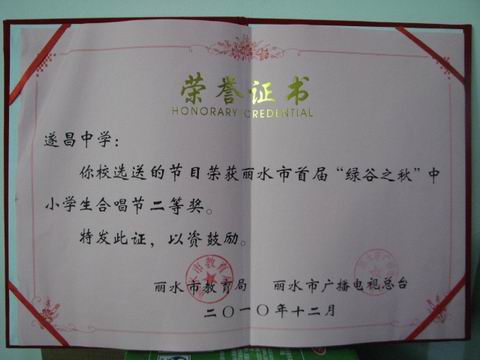 荣誉证书
HONORARY CREDENTIAL
遂昌中学：
你校选送的节目荣获丽水市首届“绿谷之秋”中
小学生合唱节二等奖。
特发此证，以资鼓励。
丽水市教育局 丽水市广播电视总台
二〇一〇年十二月